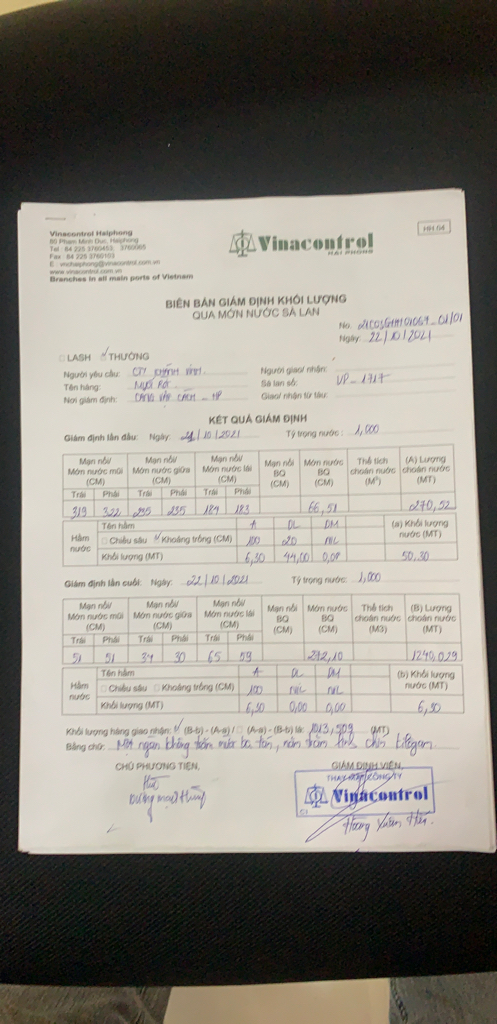 Vinacontrol Haiphong
80 Pham Minh Duc, Haiphong
Tel : 84 225 3760453; 3760065
Fax : 84 225 3760103
www.vinacontrol.com.vn
Branches in all main ports of Vietnam
Vinacontrol
HAI PHONG
HH.04
BIÊN BẢN GIÁM ĐỊNH KHỐI LƯỢNG
QUA MỚN NƯỚC SÀ LAN
No.
Ngày: 22/10/2021
LASH THƯỜNG
Người yêu cầu: CTY KHÁNH VINH Người giao/ nhận:
Tên hàng: MUỐI RỜI Sà lan số: VP-1717
Nơi giám định: CẢNG VẬT CÁCH - HP Giao/ nhận từ tàu:
KẾT QUẢ GIÁM ĐỊNH
Giám định lần đầu: Ngày: 21/10/2021 Tỷ trọng nước: 1,000
Mạn nổi/ Mớn nước mũi (CM) Mạn nổi/ Mớn nước giữa (CM) Mạn nổi/ Mớn nước lái (CM) Mạn nổi BQ (CM) Mớn nước BQ (CM) Thể tích choán nước (M³) (A) Lượng choán nước (MT)
Trái Phải Trái Phải Trái Phải
319 322 235 235 184 183 66,51 270,52
Hầm nước Tên hầm A DL DM (a) Khối lượng nước (MT)
Chiều sâu Khoảng trống (CM) 100 20 NIL
Khối lượng (MT) 6,30 44,00 0,00 50,30
Giám định lần cuối: Ngày: 22/10/2021 Tỷ trọng nước: 1,000
Mạn nổi/ Mớn nước mũi (CM) Mạn nổi/ Mớn nước giữa (CM) Mạn nổi/ Mớn nước lái (CM) Mạn nổi BQ (CM) Mớn nước BQ (CM) Thể tích choán nước (M3) (B) Lượng choán nước (MT)
Trái Phải Trái Phải Trái Phải
51 51 31 30 65 59 242,10 1240,029
Hầm nước Tên hầm A DL DM (b) Khối lượng nước (MT)
Chiều sâu Khoảng trống (CM) 100 NIL NIL
Khối lượng (MT) 6,30 0,00 0,00 6,30
Khối lượng hàng giao nhận: (B-b) - (A-a) / (A-a) - (B-b) là: 1013,509 (MT)
Bằng chữ: Một ngàn không trăm mười ba tấn, năm trăm linh chín kilogam.
CHỦ PHƯƠNG TIỆN, GIÁM ĐỊNH VIÊN,
THAY MẶT CÔNG TY
Vinacontrol